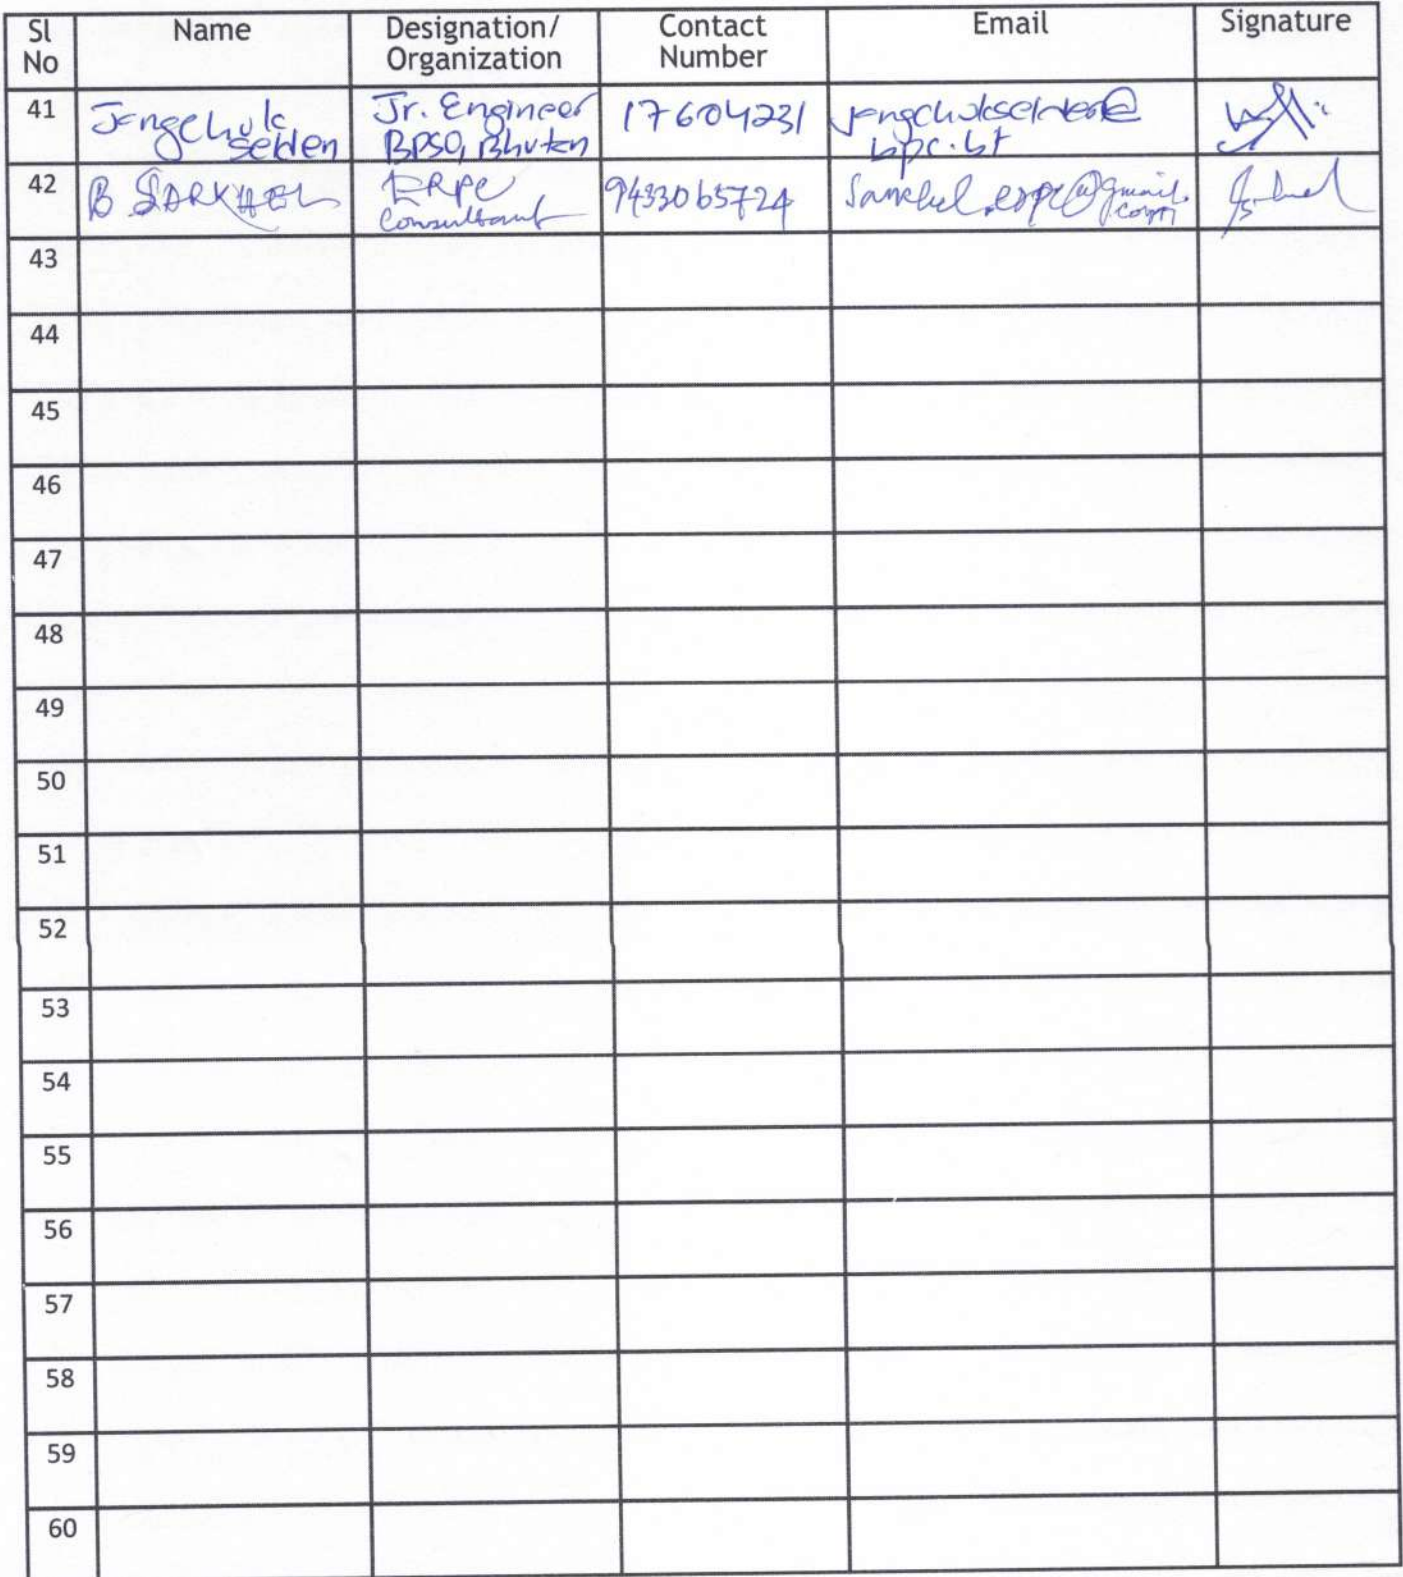 Sl No Name Designation/ Organization Contact Number Email Signature
41 Jangchuk Selden Jr. Engineer BPSO, Bhutan 17604231 jangchukselden@ bpc.bt
42 B SARKHEL ERPC Consultant 9433065724 Sarkhel.erpc@gmail.com
43
44
45
46
47
48
49
50
51
52
53
54
55
56
57
58
59
60